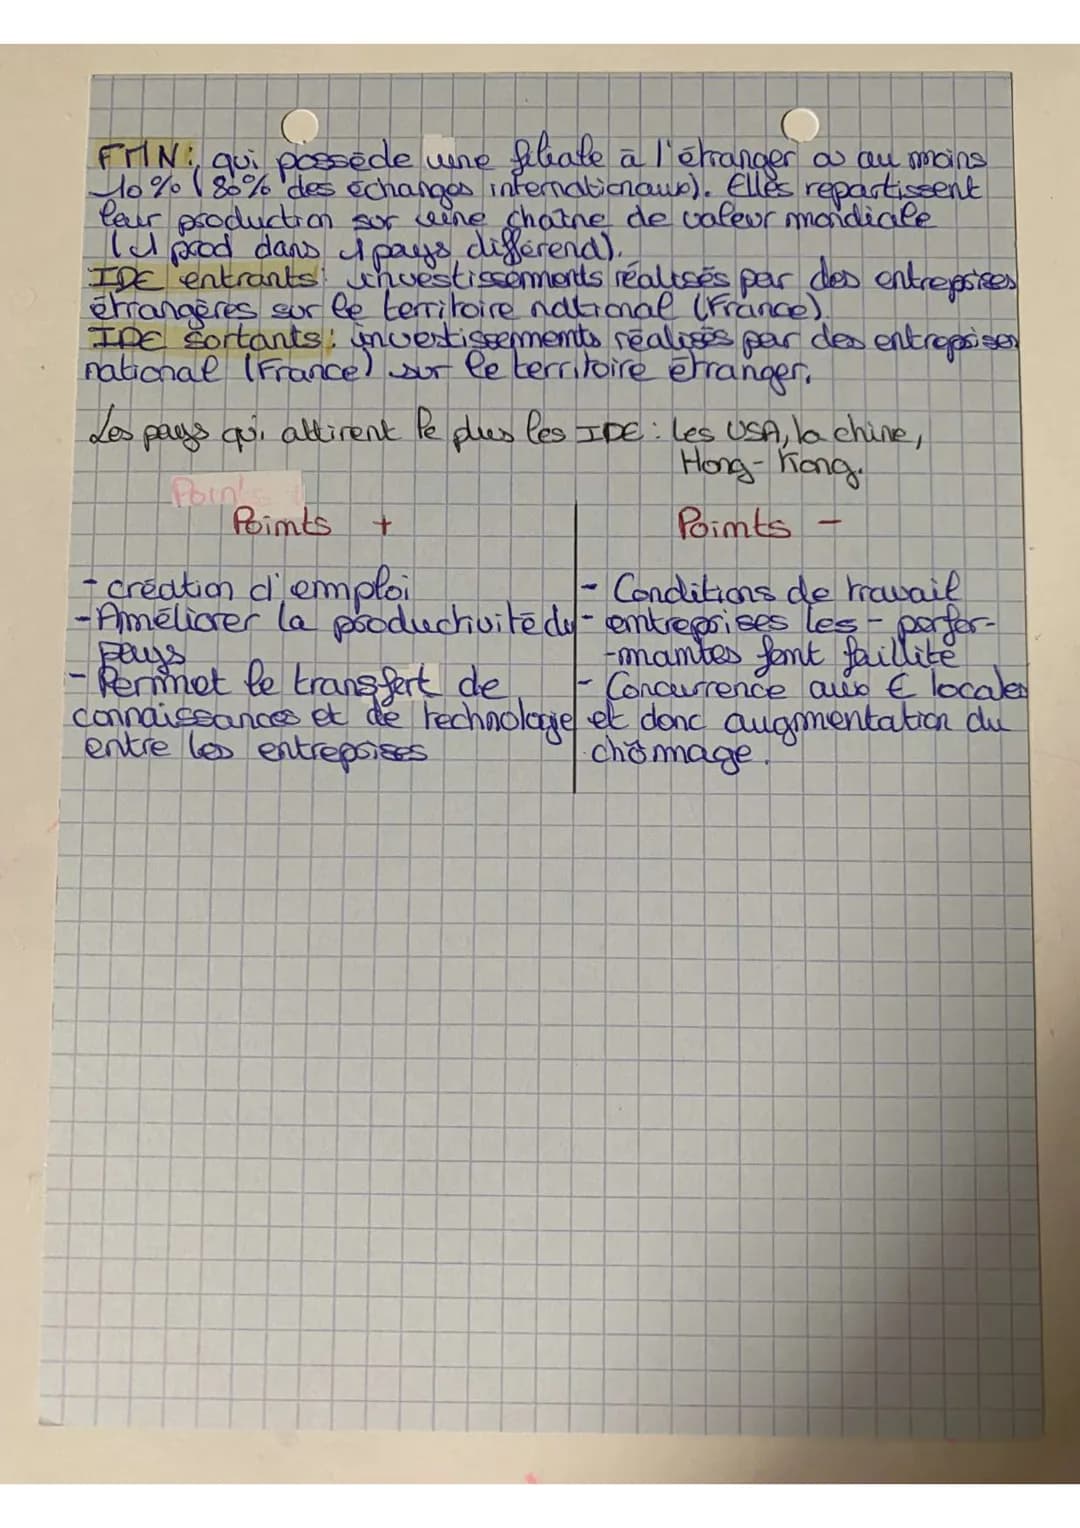 FMN: qui possède une filiale à l'étranger a au moins
10% (80% des échanges internationaux). Elles repartissent
leur production sur une chaîne de valeur mondiale
(1 prod dans 1 pays différend).
IDE entrants: investissements réalisés par des entreprises
étrangères sur le territoire national (France).
IDE sortants: investissements réalisés par des entreprises
national (France) sur le territoire étranger.
Les pays qui attirent le plus les IDE: les USA, la chine,
Hong-Kong.
Points
Points +
Points -
- création d'emploi
- Améliorer la productivité du
pays
- Permet le transfert de
connaissances et de technologie
entre les entreprises
- Conditions de travail
- entreprises les - perfor-
-mantes font faillite
- Concurrence aux € locales
et donc augmentation du
chômage.